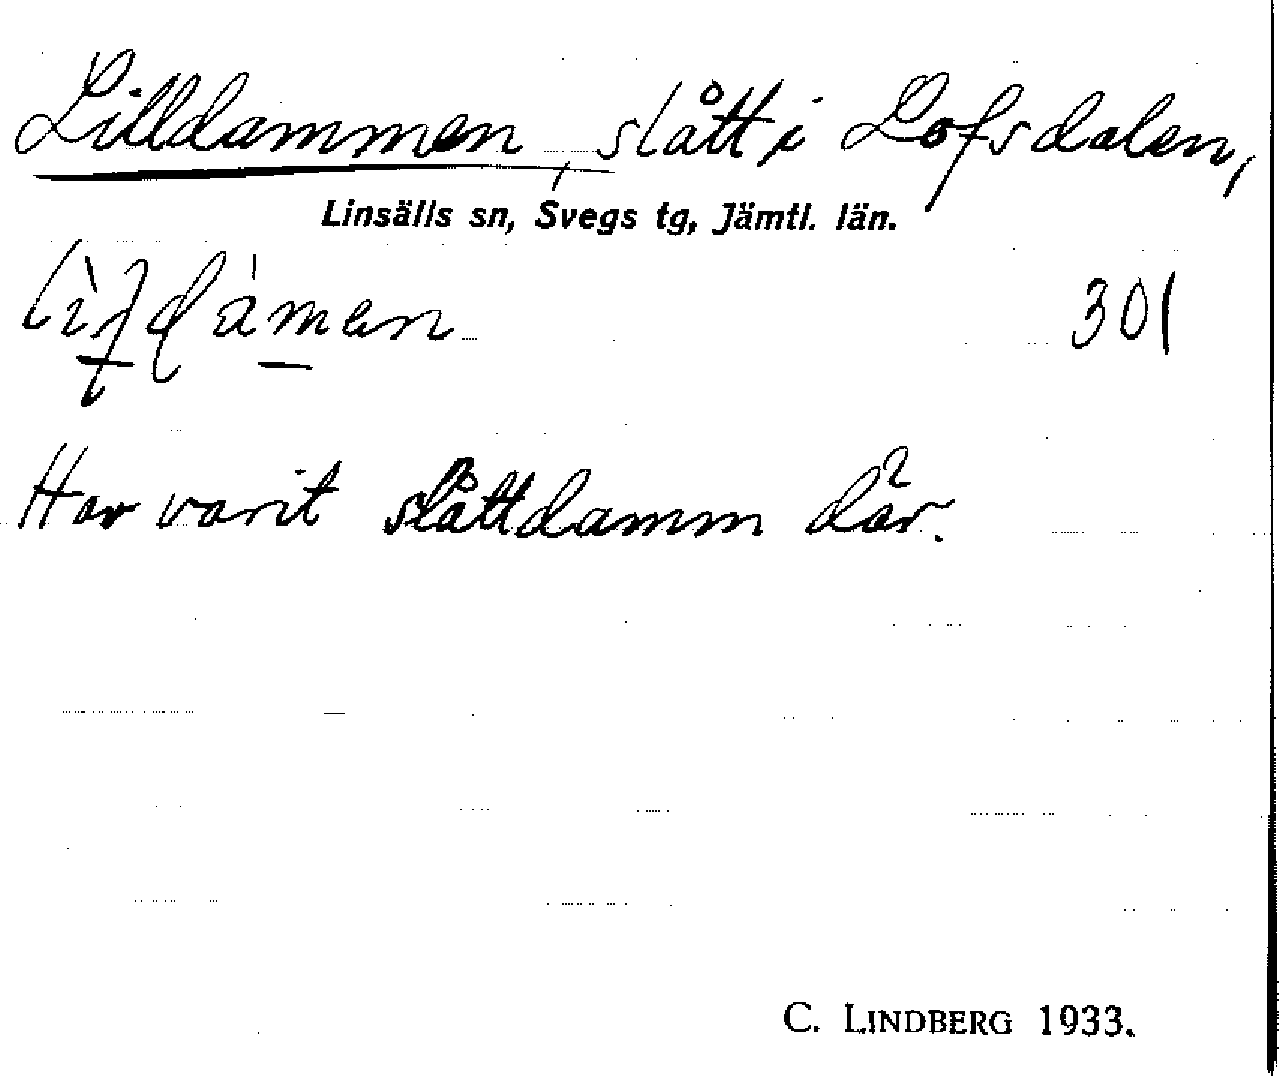 Lilldammen, slått i Lofsdalen,
Linsälls sn, Svegs tg, Jämtl. län.
301
Har varit slåttdamm där.
C. LINDBERG 1933.